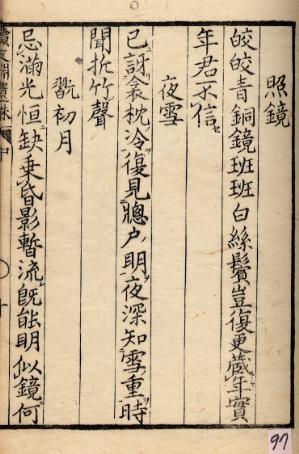 照鏡
皎皎青銅鏡班班白絲鬢豈復更藏年實
年君不信
夜雪
已訝衾枕冷復見牕户明夜深知雪重時
聞折竹聲
翫初月
忌滿光恒缺乗昏影暫流既能明似鏡何
97